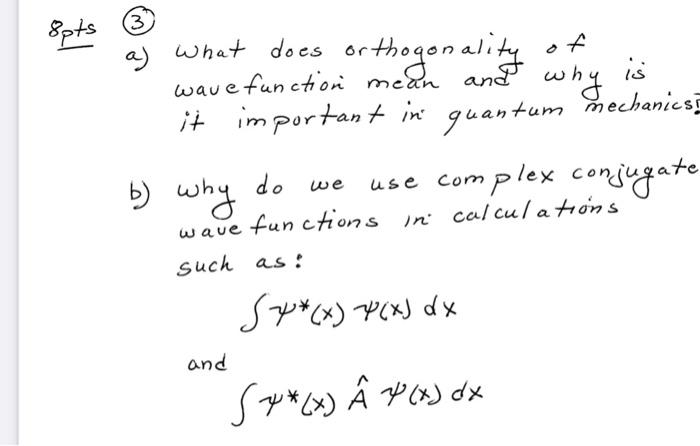 8pts ③
a) what does orthogonality of
wavefunction mean and why is
it important in quantum mechanics?
b) why do we use complex conjugate
wave functions in calculations
such as:
∫ψ*(x) ψ(x) dx
and
∫ψ*(x) Â ψ(x) dx